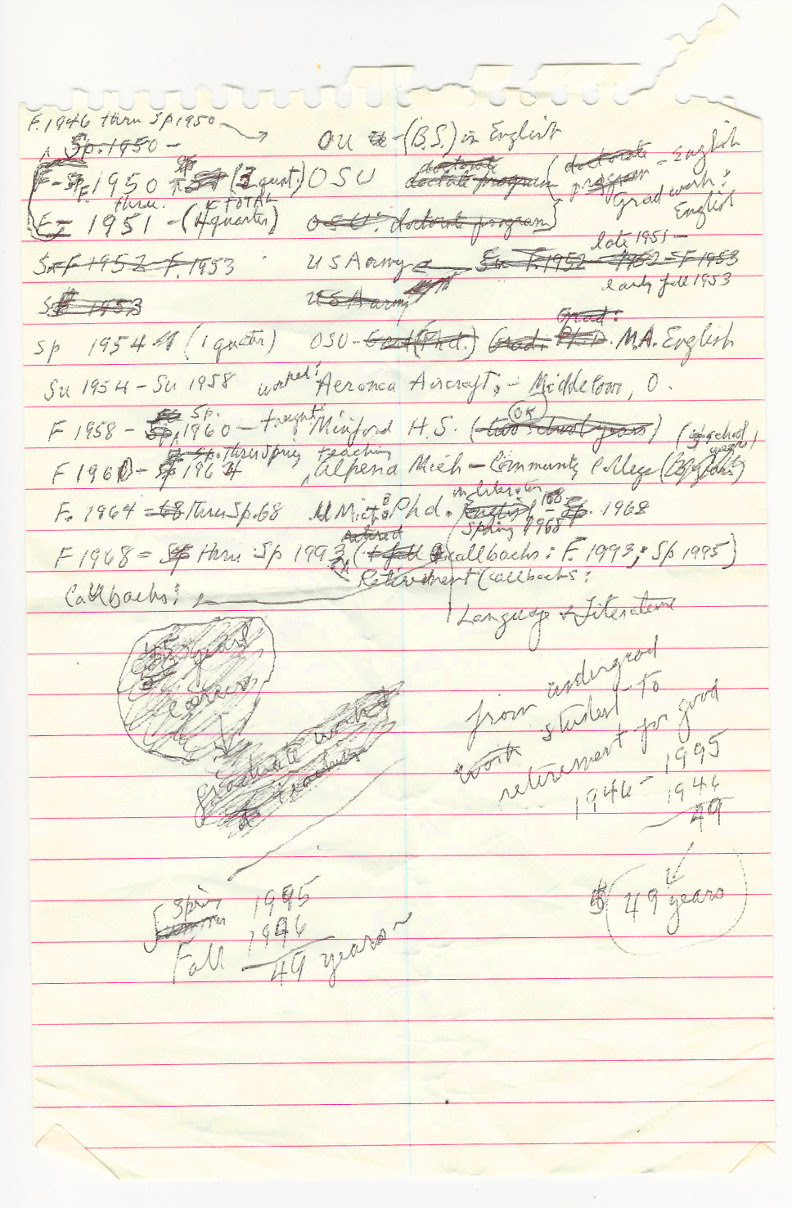 F. 1946 thru Sp 1950
Sp. 1950 - OU - (B.S.) in English
F 1950 (quart.) OSU doctorate program (doctorate program - English
thru. TOTAL Grad work:
F - 1951 - (4 quarters) OSU: doctorate program) English
late 1951 -
F 1952 - F. 1953 US Army Su F. 1952 - 1952 - F 1953
early fall 1953
1953 US Army
Grad:
Sp 1954 (1 quarter) OSU - Grad (Phd.) Grad. Ph.D. M.A. English
Su 1954 - Su 1958 worked: Aeronca Aircraft, - Middletown, O.
Sp. OK
F 1958 - Sp. 1960 - taught Minford H.S. (two school years)
thru Spring teaching
F 1960 - Sp 1964 Alpena Mich - Community College (school years)
F. 1964 = 68 thru Sp. 68 U Mich: Phd. (English) - Sp. 1968
Spring 1968
retired
F 1968 = Sp thru Sp 1993 (callbacks: F. 1993; Sp 1995)
Retirement (callbacks:
Callbacks:
Language & Literature
years
graduate work
from undergrad
work student to
retirement for good
1946 - 1995
1946
49
49 years
Spring 1995
Summer
Fall 1946
49 years